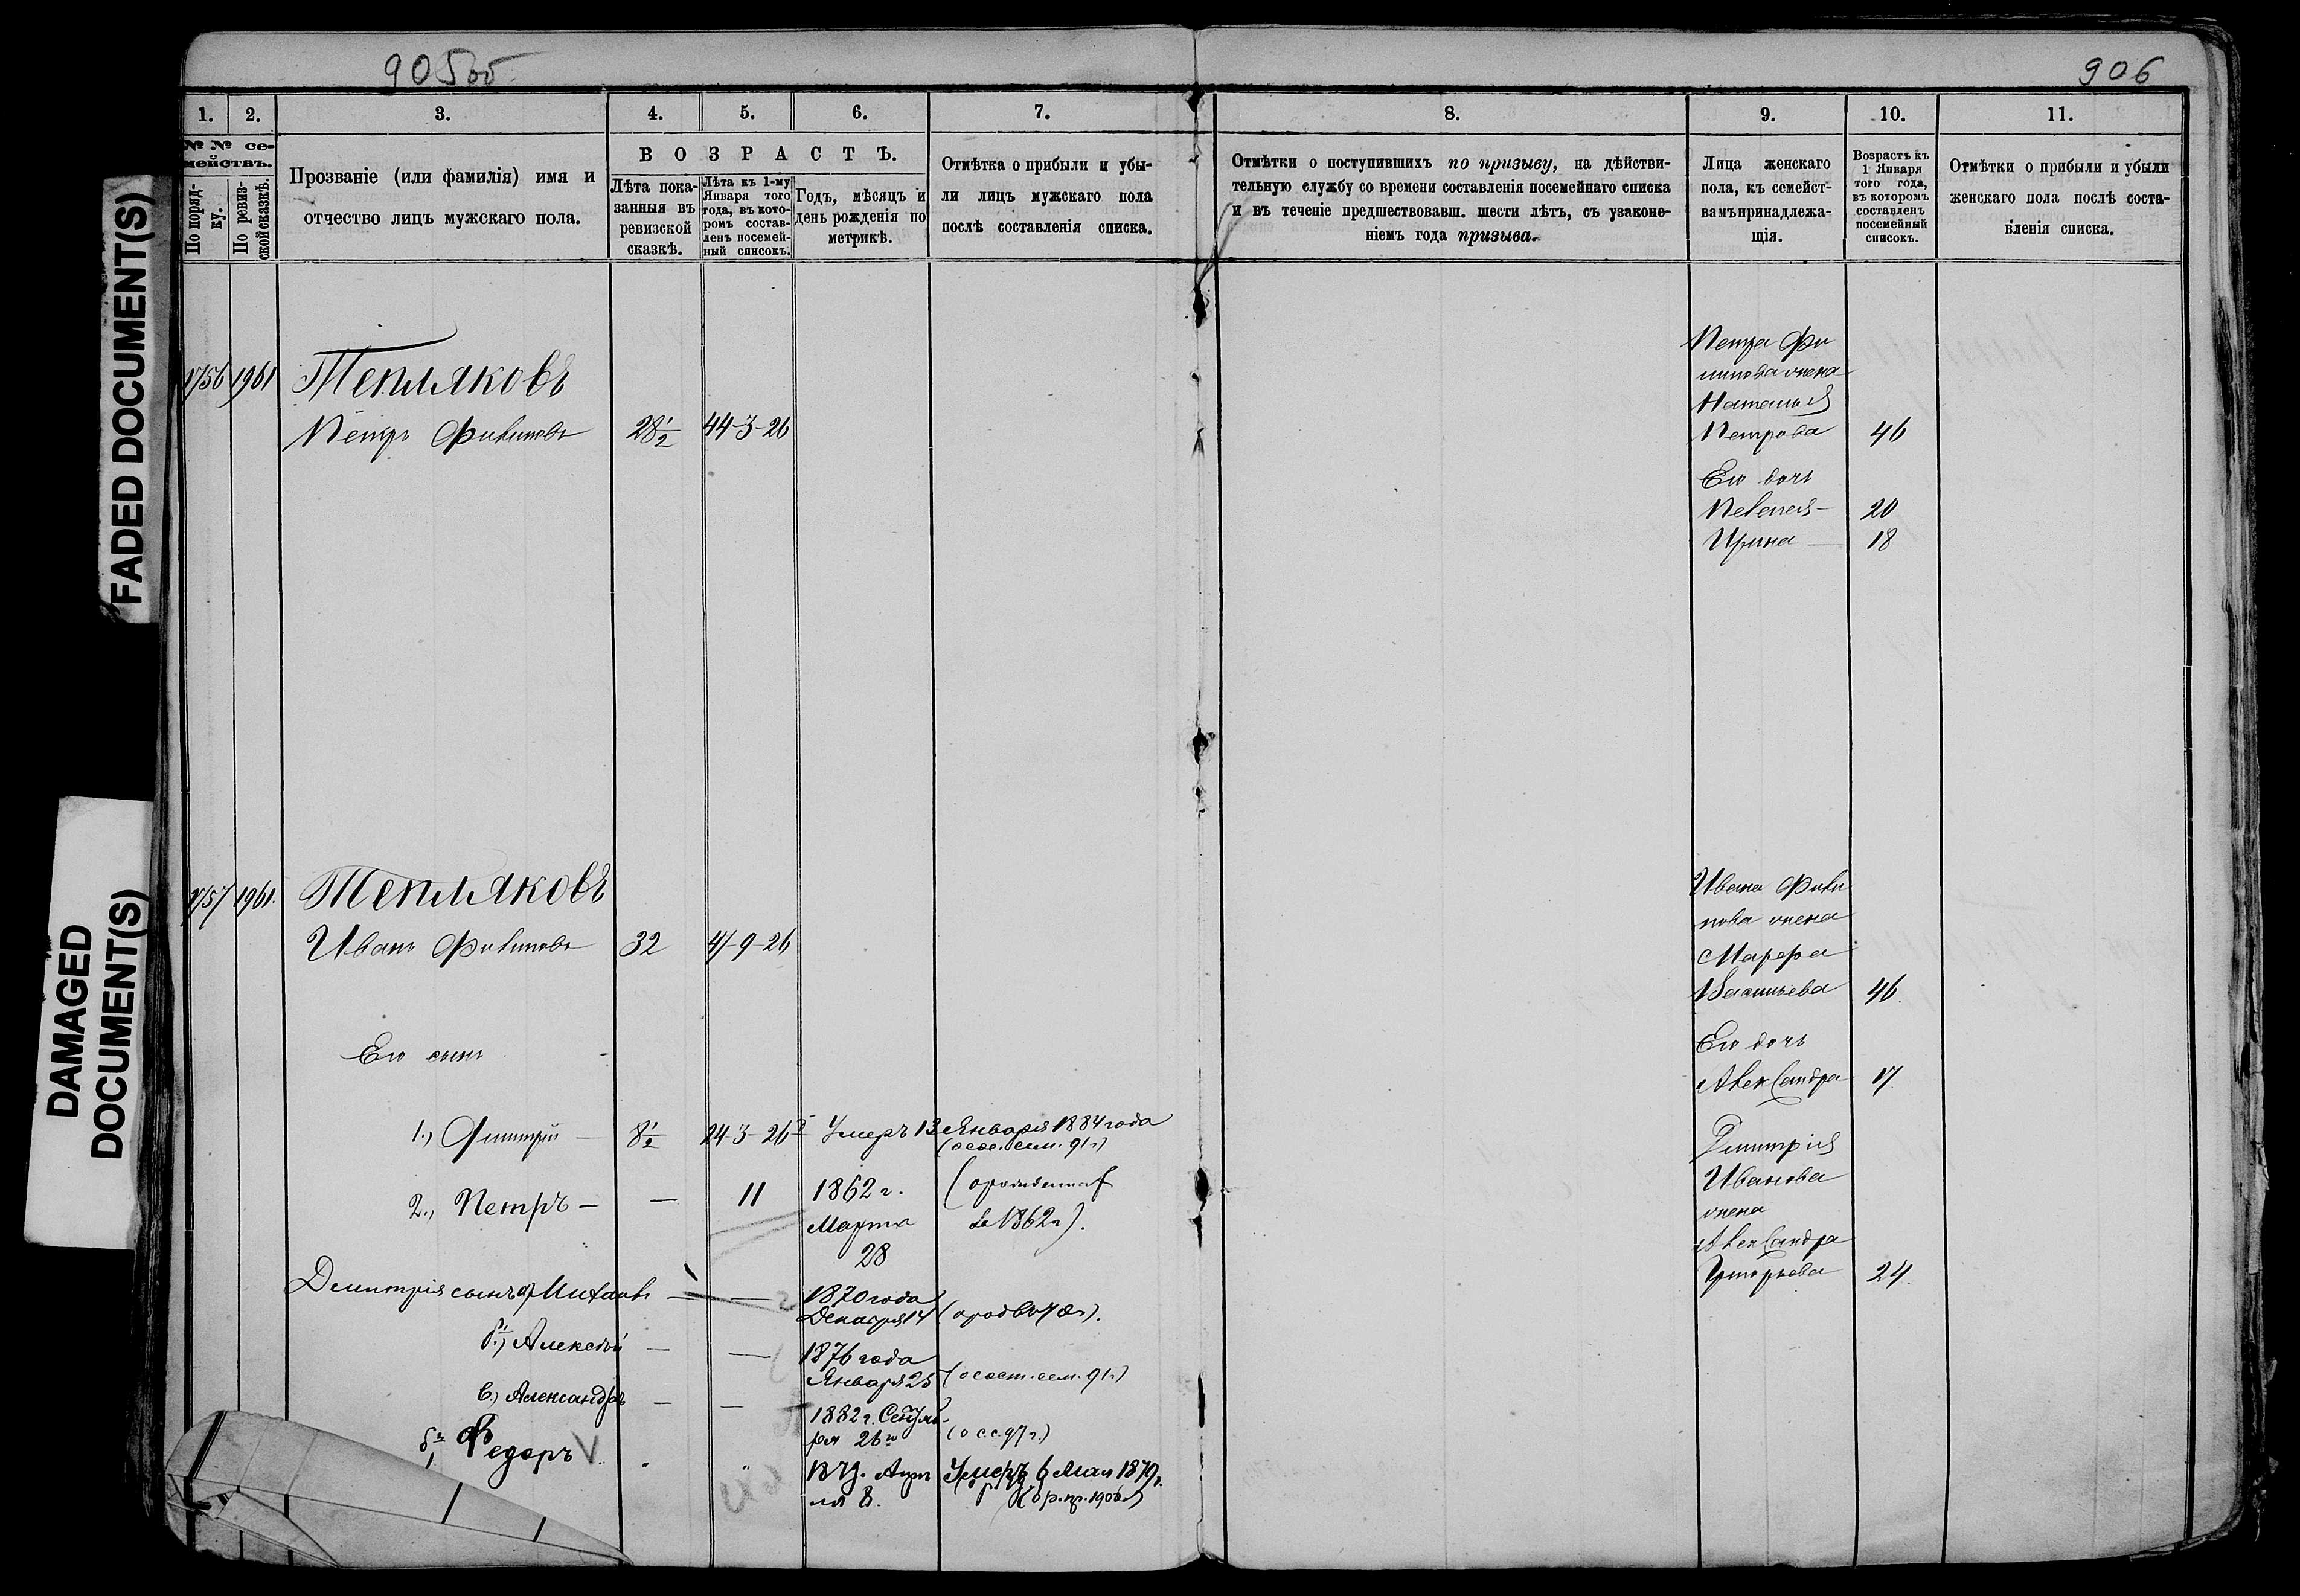 905об
906
1.
2.
3.
4.
5.
6.
7.
8.
9.
10.
11.
№ № се-
мействъ.
По поряд-
ку.
По ревиз-
ской сказкѣ.
Прозваніе (или фамилія) имя и
отчество лицъ мужскаго пола.
ВОЗРАСТЪ.
Лѣта пока-
занныя въ
ревизской
сказкѣ.
Лѣта къ 1-му
Января того
года, въ кото-
ромъ состав-
ленъ посемей-
ный списокъ.
Годъ, мѣсяцъ и
день рожденія по
метрикѣ.
Отмѣтка о прибыли и убы-
ли лицъ мужскаго пола
послѣ составленія списка.
Отмѣтки о поступившихъ по призыву, на дѣйстви-
тельную службу со времени составленія посемейнаго списка
и въ теченіе предшествовавш. шести лѣтъ, съ узаконе-
ніемъ года призыва.
Лица женскаго
пола, къ семейст-
вамъ принадлежа-
щія.
Возрастъ къ
1 Января
того года,
въ которомъ
составленъ
посемейный
списокъ.
Отмѣтки о прибыли и убыли
женскаго пола послѣ соста-
вленія списка.
FADED DOCUMENT(S)
DAMAGED
DOCUMENT(S)
1756 1961 Тепляковъ
Петръ Филиповъ 28 1/2 44-3-26
Петра Фи
липова жена
Наталья
Петрова 46
Его дочь
Пелагея — 20
Ирина — 18
1757 1961. Тепляковъ
Иванъ Филиповъ 32 47-9-26
Ивана Фили
пова жена
Марфа
Васильева 46.
Его сынъ
Его дочь
Александра 17.
1.) Дмитрій — 8 1/2 24-3-26 Умеръ 13 Января 1884 года
(о сос. сем. 91 г)
2.) Петръ — — 11 1862 г.
Марта
28
въ 1862 г).
Дмитрія
Иванова
жена
Александра
Григорьева 24.
Димитрія сынъ а) Михаилъ — — 1870 года
Декабря 14
б.) Алексѣй — — 1876 года
Января 25 (о сост. сем. 91 г)
в.) Александръ — — 1882 г. Сентяб-
ря 26го (о с.с. 97 г.)
Федоръ V
Апрѣ
ля 8.
Умеръ 6 Мая 1879 г.
(о р. пр. 1900 г)